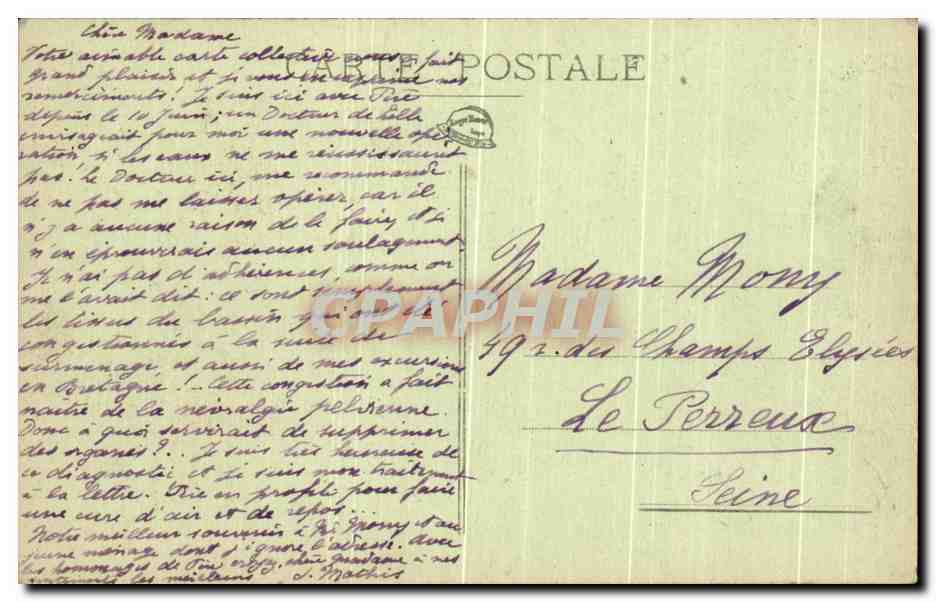 Chère Madame
Votre aimable carte collective nous a fait
grand plaisir et je vous en exprime nos
remerciments! Je suis ici avec
depuis le 10 Juin; un Docteur de
envisageait pour moi une nouvelle opé-
ration si les eaux ne me réussissaient
pas! Le Docteur ici, me recommande
de ne pas me laisser opérer, car il
n'y a aucune raison de le faire, et je
n'en éprouverais aucun soulagement.
Je n'ai pas d'adhérences, comme on
me l'avait dit: ce sont simplement
les tissus du bassin qui ont été
congestionnés à la suite de
surmenage, et aussi de mes excursions
en Bretagne! - Cette congestion a fait
naître de la névralgie pelvienne.
Donc à quoi servirait de supprimer
des organes?.. Je suis très heureuse de
ce diagnostic et je suis mon traitement
à la lettre. en profite pour faire
une cure d'air et de repos...
Notre meilleur souvenir à Mr Mony et au
jeune ménage dont j'ignore l'adresse. Avec
les hommages de chère Madame à nos
sentiments les meilleurs J. Mathis
CARTE POSTALE
Madame Mony
49 r. des Champs Elysées
Le Perreux
Seine
CPAPHIL